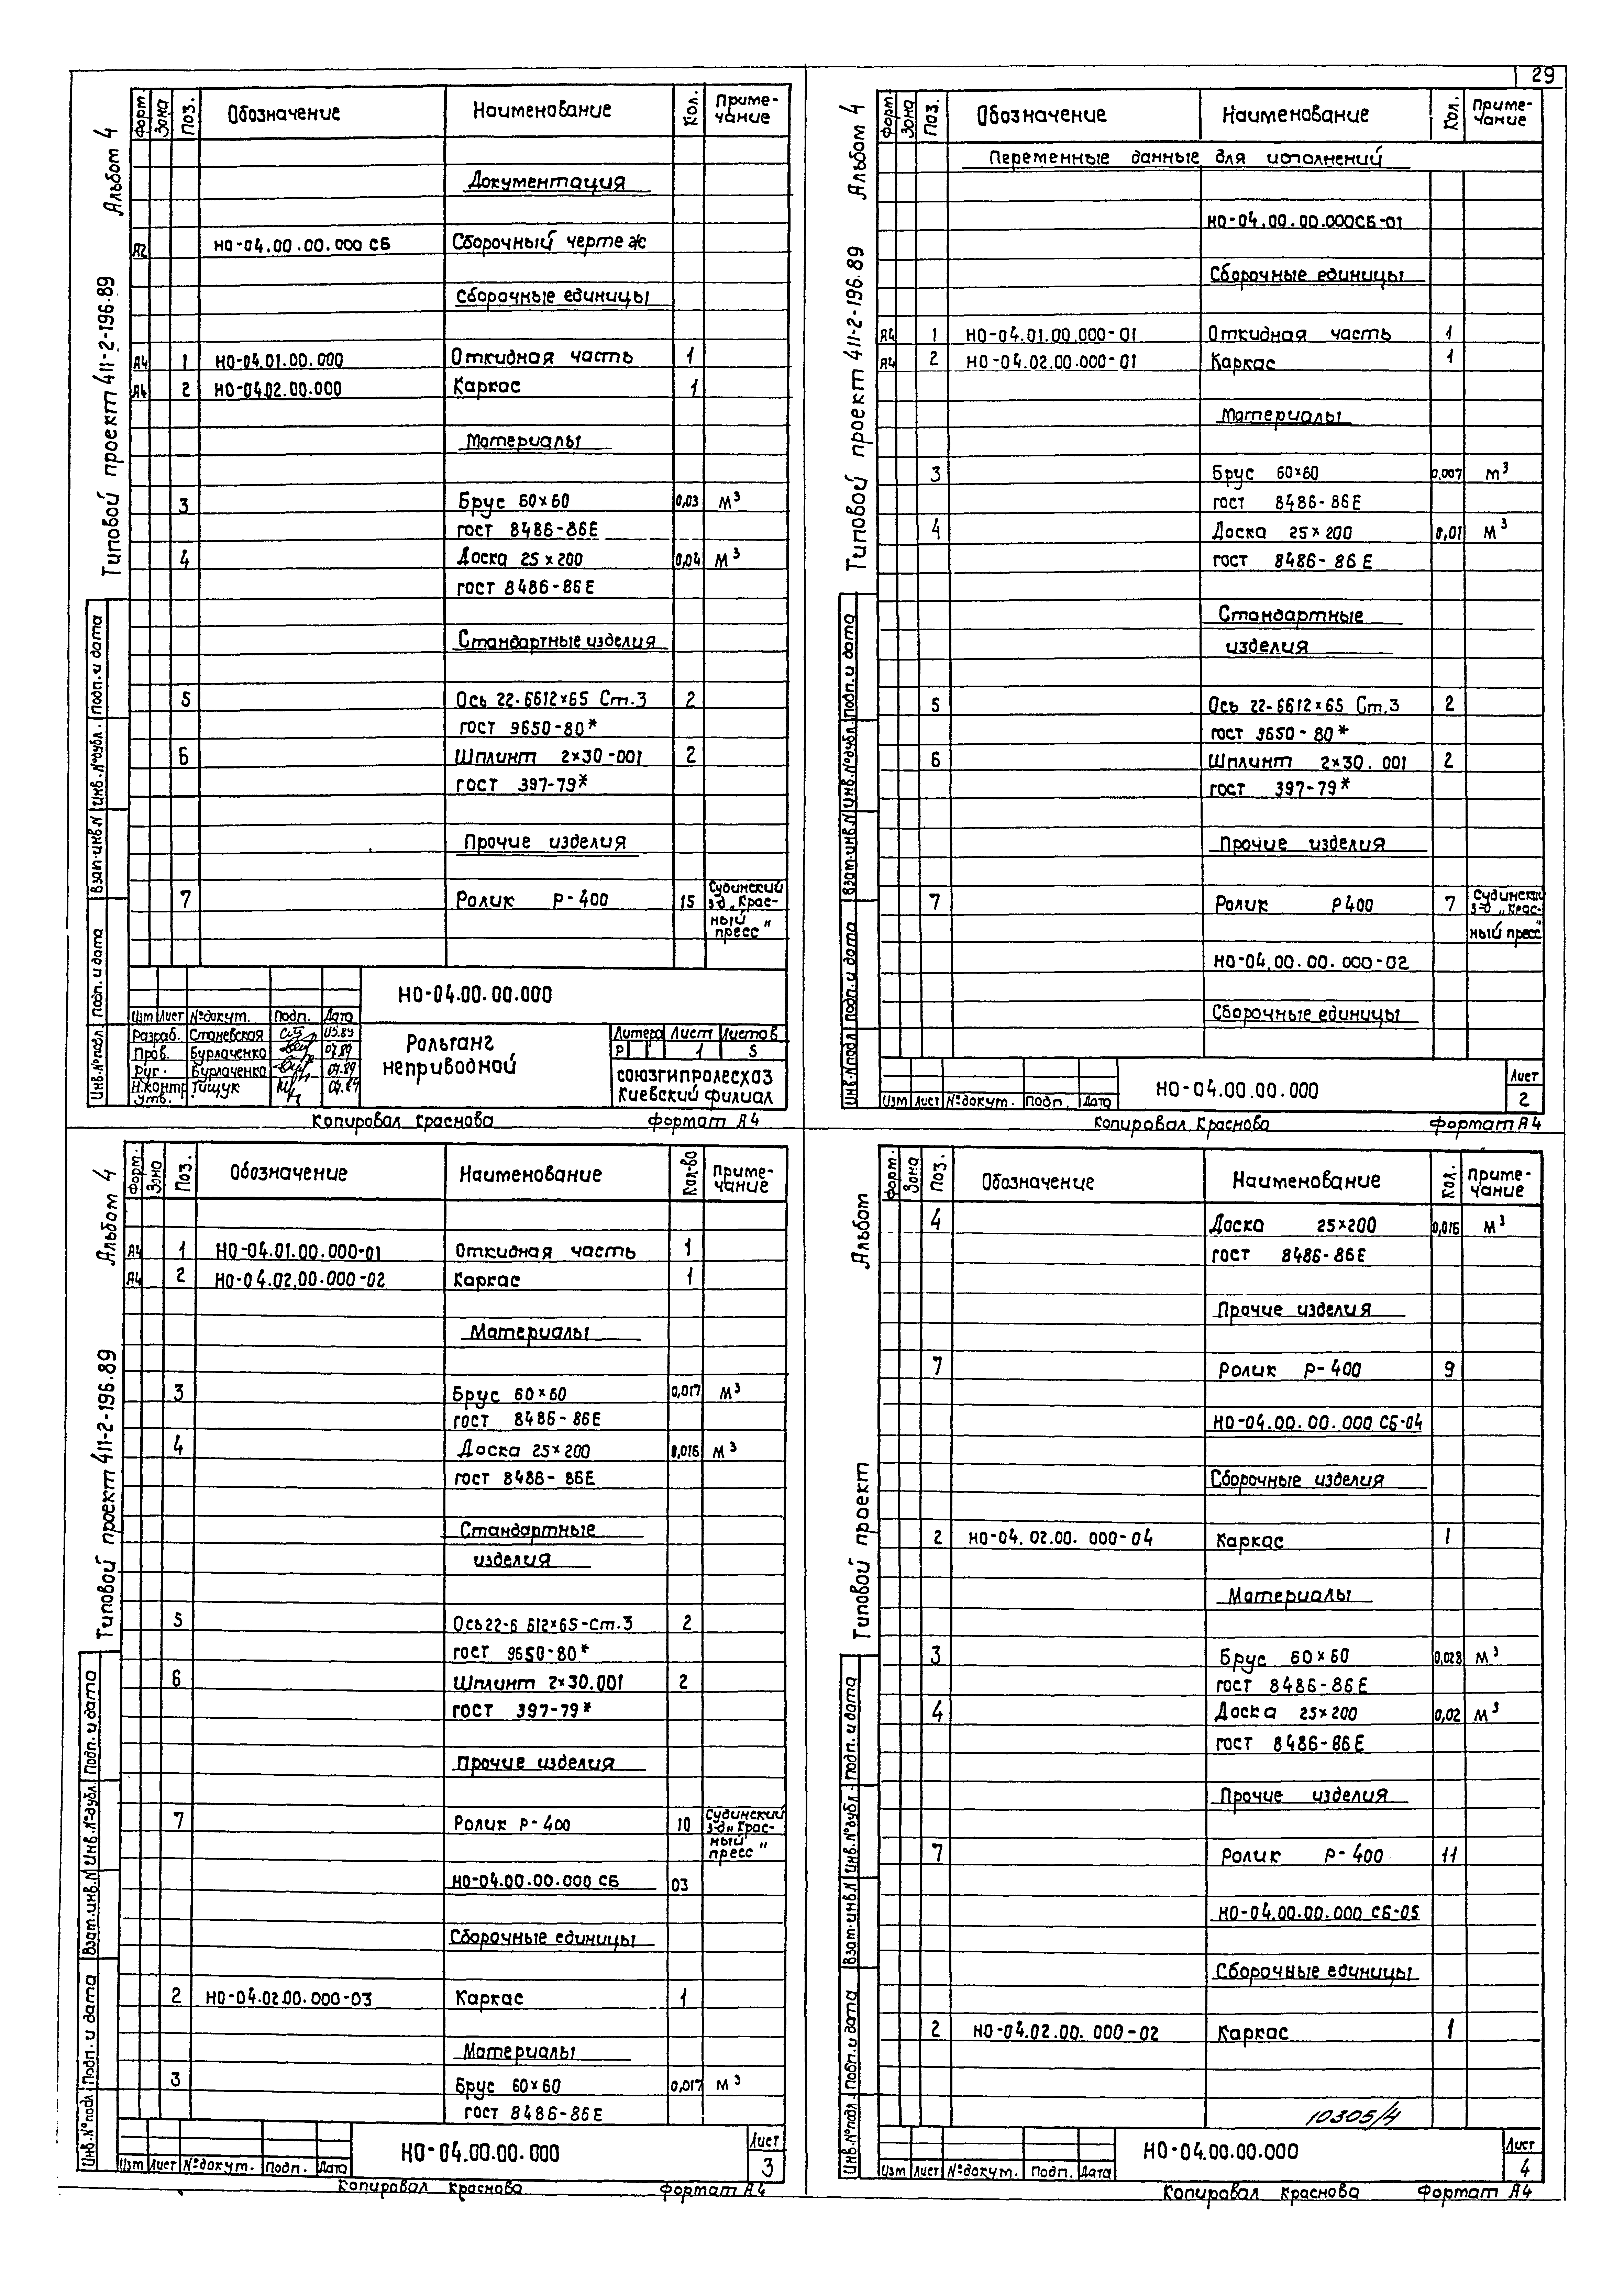 29
Альбом 4
Типовой проект 411-2-196.89
Форм. Зона Поз. Обозначение Наименование Кол. Примечание
Документация
А2 НО-04.00.00.000 СБ Сборочный чертеж
Сборочные единицы
А4 1 НО-04.01.00.000 Откидная часть 1
А4 2 НО-04.02.00.000 Каркас 1
Материалы
3 Брус 60×60 0,03 м³
гост 8486-86Е
4 Доска 25×200 0,04 м³
гост 8486-86Е
Стандартные изделия
5 Ось 22-6б12×65 Ст.3 2
гост 9650-80*
6 Шплинт 2×30-001 2
гост 397-79*
Прочие изделия
7 Ролик Р-400 15 Судинский
з-д „Крас-
ный
пресс"
Инв.№подл. Подп. и дата Взам.инв.N Инв.№дубл. Подп. и дата
НО-04.00.00.000
Изм Лист №докум. Подп. Дата
Разраб. Станевская
Пров. Бурлаченко 07.89
Рук. Бурлаченко 07.89
Н.контр Тищук
Утв.
Рольганг
неприводной
Литера Лист Листов
Р 1 5
союзгипролесхоз
Киевский филиал
Копировал Краснова Формат А4
Альбом 4
Типовой проект 411-2-196.89
Форм. Зона Поз. Обозначение Наименование Кол. Примечание
Переменные данные для исполнений
НО-04.00.00.000СБ-01
Сборочные единицы
А4 1 НО-04.01.00.000-01 Откидная часть 1
А4 2 НО-04.02.00.000-01 Каркас 1
Материалы
3 Брус 60×60 0,007 м³
гост 8486-86Е
4 Доска 25×200 0,01 м³
гост 8486-86Е
Стандартные
изделия
5 Ось 22-6б12×65 Ст.3 2
гост 9650-80*
6 Шплинт 2×30.001 2
гост 397-79*
Прочие изделия
7 Ролик Р400 7 Судинский
з-д „Крас-
ный пресс"
НО-04.00.00.000-02
Сборочные единицы
Инв.№подл Подп. и дата Взам.инв.N Инв.№дубл. Подп. и дата
Изм Лист №докум. Подп. Дата
НО-04.00.00.000
Лист
2
Копировал Краснова Формат А4
Альбом 4
Типовой проект 411-2-196.89
Форм. Зона Поз. Обозначение Наименование Кол-во Примечание
А4 1 НО-04.01.00.000-01 Откидная часть 1
А4 2 НО-04.02.00.000-02 Каркас 1
Материалы
3 Брус 60×60 0,017 м³
гост 8486-86Е
4 Доска 25×200 0,016 м³
гост 8486-86Е
Стандартные
изделия
5 Ось22-6 б12×65-Ст.3 2
гост 9650-80*
6 Шплинт 2×30.001 2
гост 397-79*
Прочие изделия
7 Ролик Р-400 10 Судинский
з-д „Крас-
ный
пресс"
НО-04.00.00.000 СБ 03
Сборочные единицы
2 НО-04.02.00.000-03 Каркас 1
Материалы
3 Брус 60×60 0,017 м³
гост 8486-86Е
Инв.№подл Подп. и дата Взам.инв.N Инв.№дубл. Подп. и дата
Изм Лист №докум. Подп. Дата
НО-04.00.00.000
Лист
3
Копировал Краснова Формат А4
Альбом
Типовой проект
Форм. Зона Поз. Обозначение Наименование Кол. Примечание
4 Доска 25×200 0,016 м³
гост 8486-86Е
Прочие изделия
7 Ролик Р-400 9
НО-04.00.00.000 СБ-04
Сборочные изделия
2 НО-04.02.00.000-04 Каркас 1
Материалы
3 Брус 60×60 0,028 м³
гост 8486-86Е
4 Доска 25×200 0,02 м³
гост 8486-86Е
Прочие изделия
7 Ролик Р-400 11
НО-04.00.00.000 СБ-05
Сборочные единицы
2 НО-04.02.00.000-02 Каркас 1
10305/4
Инв.№подл. Подп. и дата Взам.инв.N Инв.№дубл. Подп. и дата
Изм Лист №докум. Подп. Дата
НО-04.00.00.000
Лист
4
Копировал Краснова Формат А4